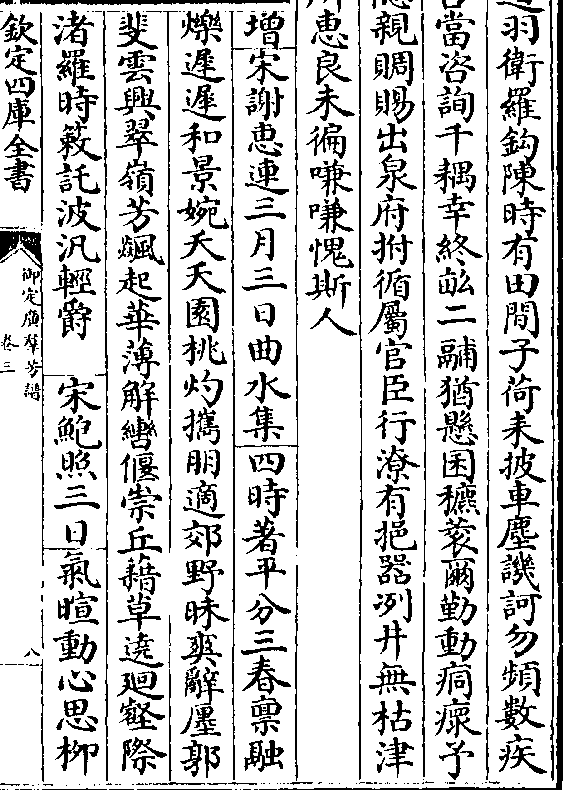 羽衛羅鈎陳時有田間子荷耒披車塵譏訶勿頻數疾
當咨詢千耦幸終畝二鬴猶懸囷穮蔉爾勤動痌瘝予
親賙賜出泉府拊循屬官臣行潦有挹器冽井無枯津
惠良未徧嗛嗛愧斯人
增宋謝惠連三月三日曲水集四時著平分三春禀融
爍遲遲和景婉夭夭園桃灼攜朋適郊野昧爽辭廛郭
斐雲興翠嶺芳飇起華薄解轡偃崇丘藉草遶廻壑際
渚羅時蔌託波汎輕爵 宋鮑照三日氣暄動心思柳
欽定四庫全書
御定廣羣芳譜
卷三
八